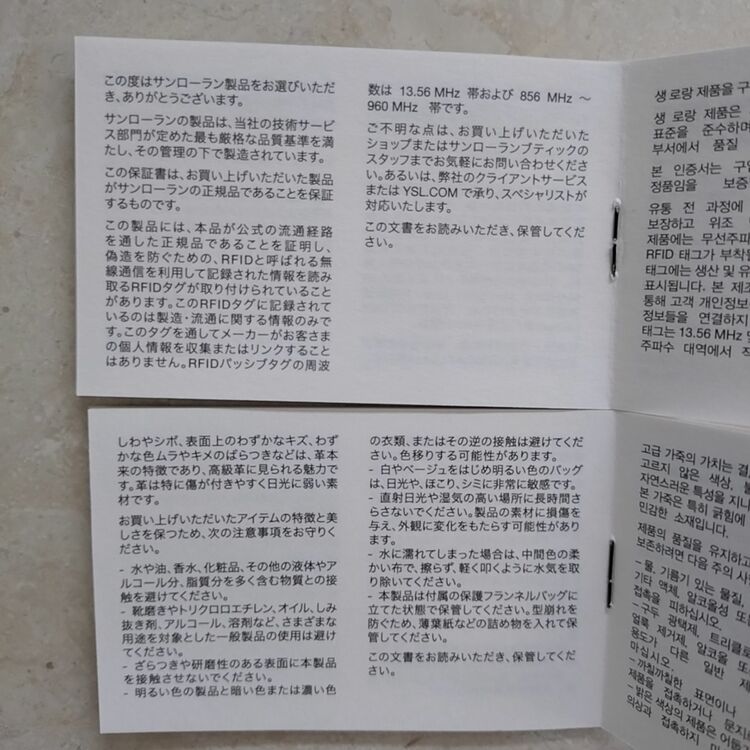 この度はサンローラン製品をお選びいただ
き、ありがとうございます。
サンローランの製品は、当社の技術サービ
ス部門が定めた最も厳格な品質基準を満
たし、その管理の下で製造されています。
この保証書は、お買い上げいただいた製品
がサンローランの正規品であることを保証
するものです。
この製品には、本品が公式の流通経路
を通した正規品であることを証明し、
偽造を防ぐための、RFIDと呼ばれる無
線通信を利用して記録された情報を読み
取るRFIDタグが取り付けられていること
があります。このRFIDタグに記録されて
いるのは製造・流通に関する情報のみで
す。このタグを通してメーカーがお客さま
の個人情報を収集またはリンクすること
はありません。RFIDパッシブタグの周波
数は 13.56 MHz 帯および 856 MHz ～
960 MHz 帯です。
ご不明な点は、お買い上げいただいた
ショップまたはサンローランブティックの
スタッフまでお気軽にお問い合わせくださ
い。あるいは、弊社のクライアントサービス
または YSL.COM で承り、スペシャリストが
対応いたします。
この文書をお読みいただき、保管してくだ
さい。
생 로랑 제품을 구
생 로랑 제품은
표준을 준수하며
부서에서 품질
본 인증서는 구입
정품임을 보증
유통 전 과정에
보장하고 위조
제품에는 무선주파
RFID 태그가 부착될
태그에는 생산 및 유
표시됩니다. 본 제조
통해 고객 개인정보
정보들을 연결하지
태그는 13.56 MHz 및
주파수 대역에서 작
しわやシボ、表面上のわずかなキズ、わず
かな色ムラやキメのばらつきなどは、革本
来の特徴であり、高級革に見られる魅力で
す。革は特に傷が付きやすく日光に弱い素
材です。
お買い上げいただいたアイテムの特徴と美
しさを保つため、次の注意事項をお守りく
ださい。
- 水や油、香水、化粧品、その他の液体やア
ルコール分、脂質分を多く含む物質との接
触を避けてください。
- 靴磨きやトリクロロエチレン、オイル、しみ
抜き剤、アルコール、溶剤など、さまざまな
用途を対象とした一般製品の使用は避け
てください。
- ざらつきや研磨性のある表面に本製品
を接触させないでください。
- 明るい色の製品と暗い色または濃い色
の衣類、またはその逆の接触は避けてくだ
さい。色移りする可能性があります。
- 白やベージュをはじめ明るい色のバッグ
は、日光や、ほこり、シミに非常に敏感です。
- 直射日光や湿気の高い場所に長時間さ
らさないでください。製品の素材に損傷を
与え、外観に変化をもたらす可能性があり
ます。
- 水に濡れてしまった場合は、中間色の柔
かい布で、擦らず、軽く叩くように水気を取
り除いてください。
- 本製品は付属の保護フランネルバッグに
立てた状態で保管してください。型崩れを
防ぐため、薄葉紙などの詰め物を入れて保
管してください。
この文書をお読みいただき、保管してくだ
さい。
고급 가죽의 가치는 결,
고르지 않은 색상, 불
자연스러운 특성을 지니
본 가죽은 특히 긁힘에
민감한 소재입니다.
제품의 품질을 유지하고
보존하려면 다음 주의 사
– 물, 기름기 있는 물질,
기타 액체, 알코올성 또는
접촉을 피하십시오.
– 구두 광택제, 트리클로
얼룩 제거제, 알코올 또
용도가 다른 일반 제
마십시오.
– 까칠까칠한 표면이나
제품을 접촉하거나 문지
– 밝은 색상의 제품은 어두
의상과 접촉하지